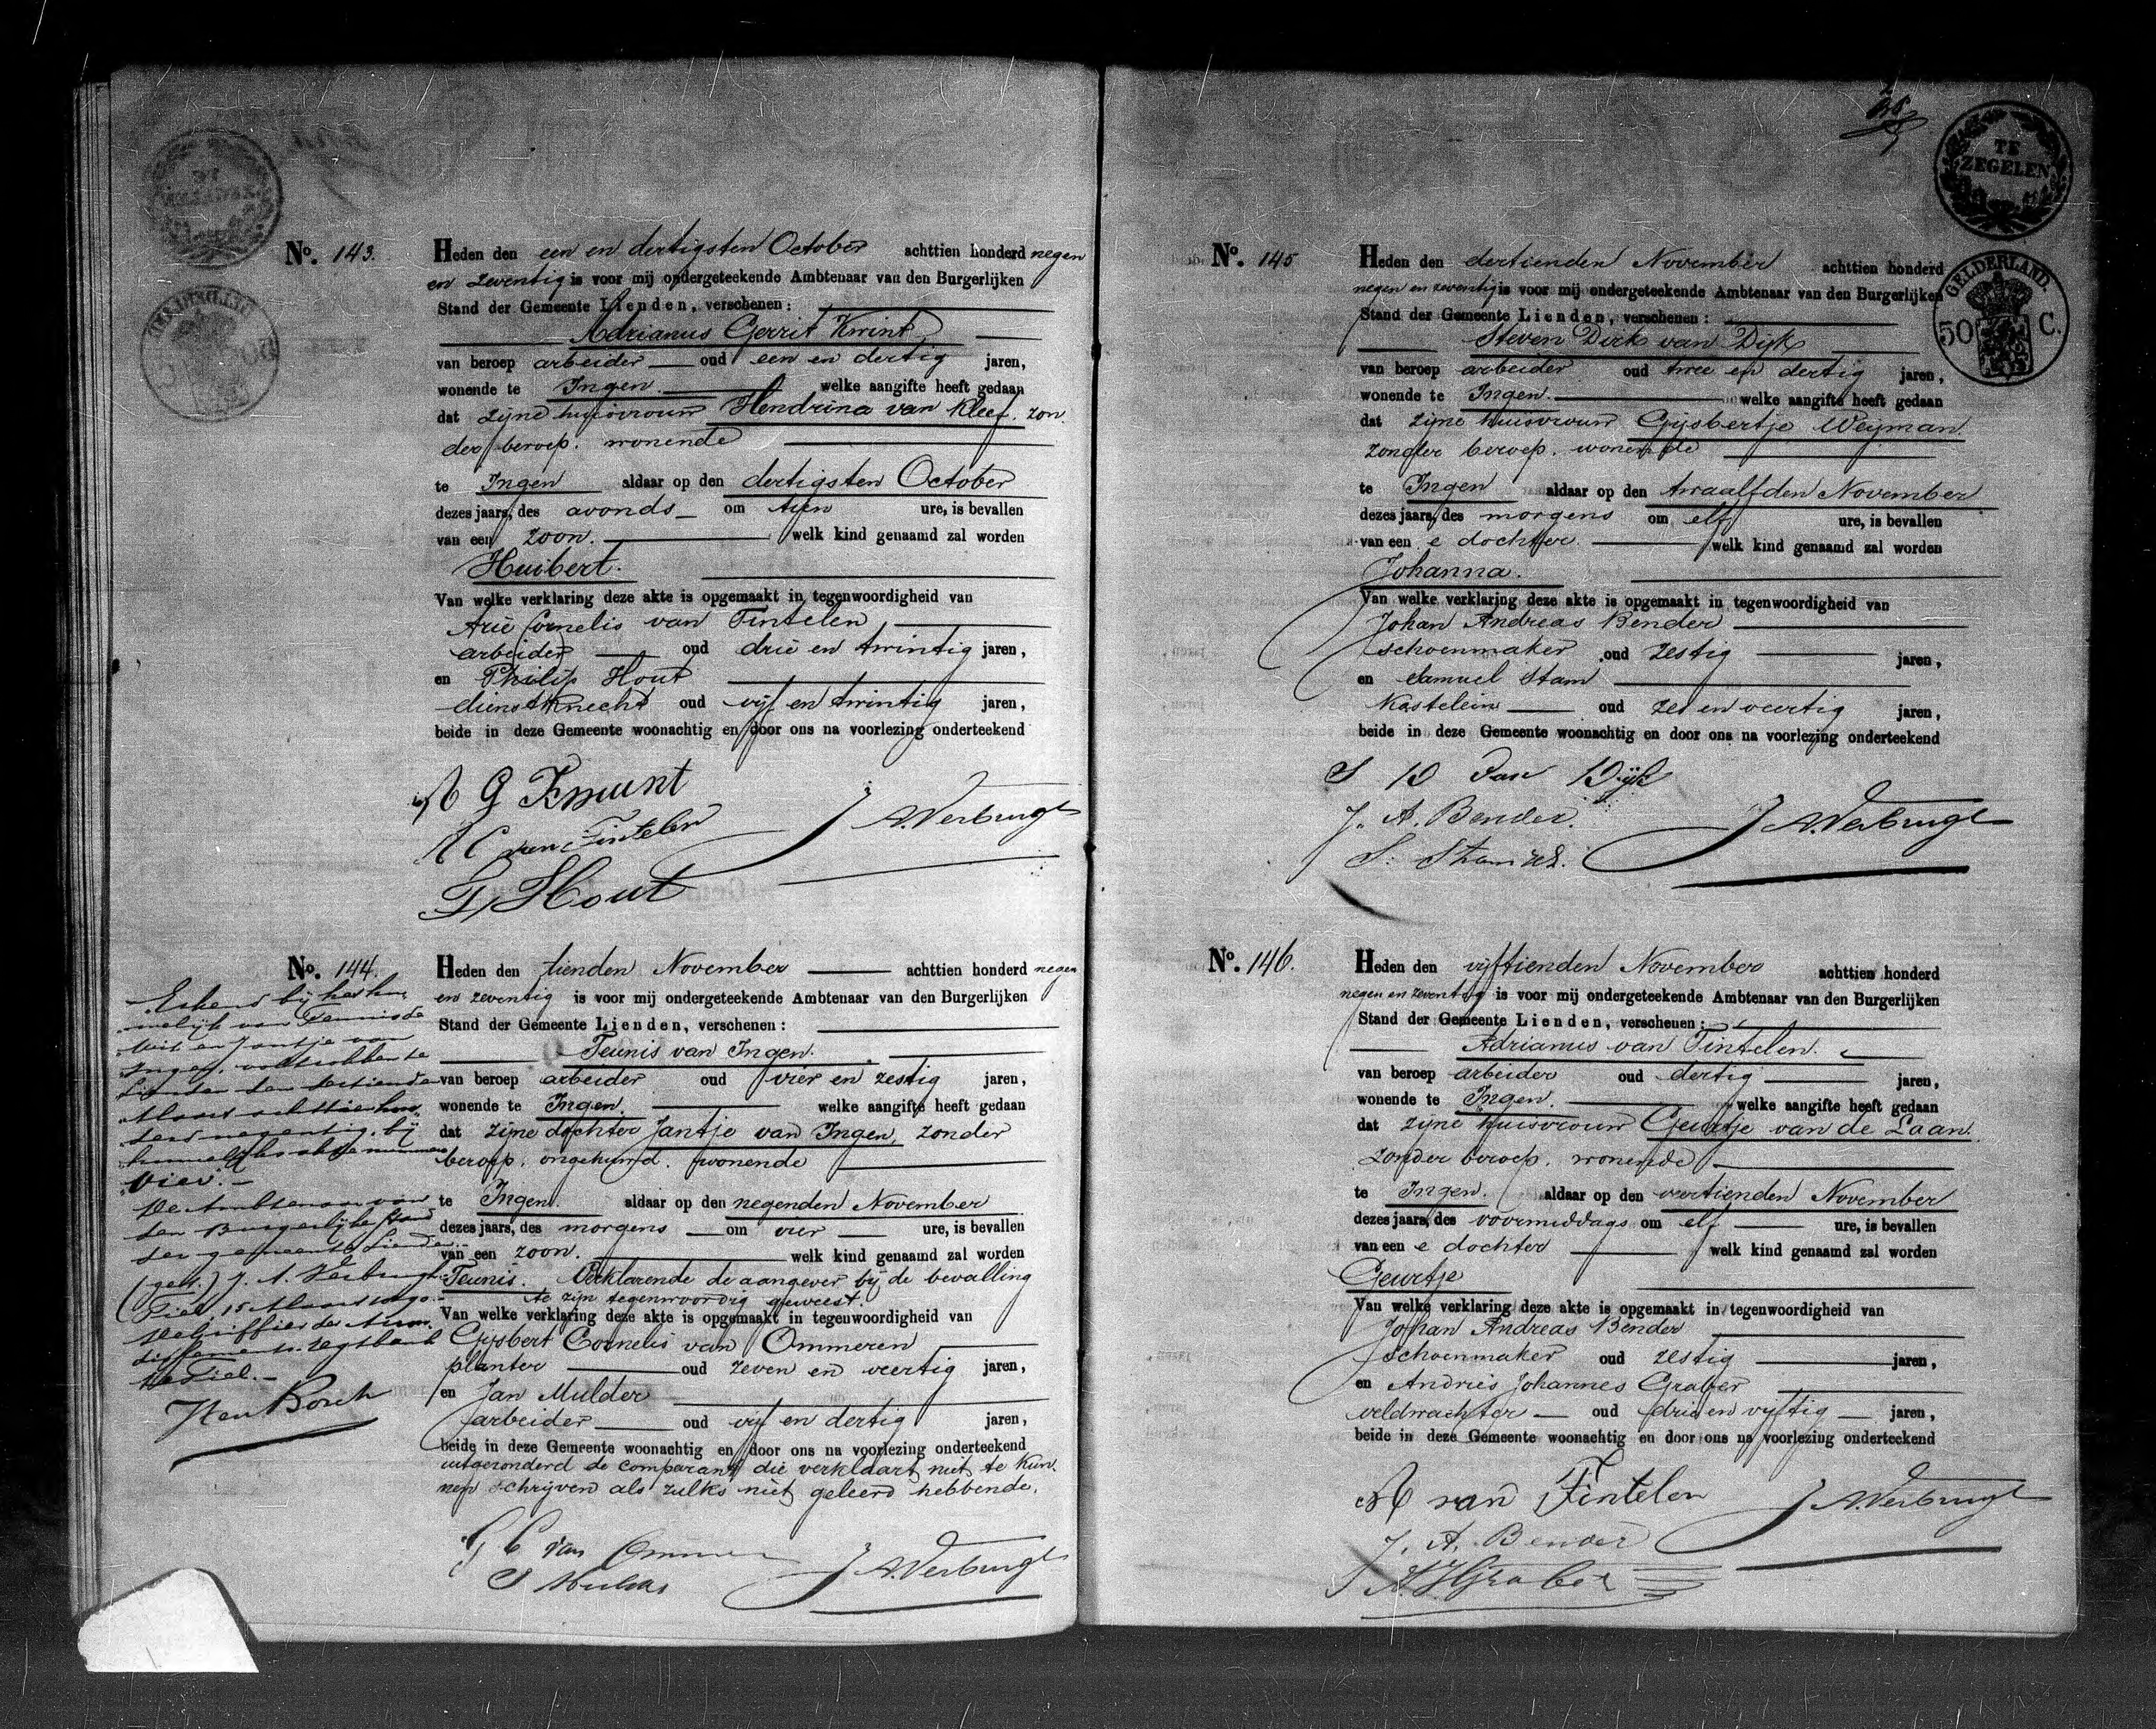 No. 143.
Heden den een en dertigsten October achttien honderd negen
en zeventig is voor mij ondergeteekende Ambtenaar van den Burgerlijken
Stand der Gemeente Lienden, verschenen:
Adrianus Gerrit Kwint
van beroep arbeider oud een en dertig jaren,
wonende te Ingen. welke aangifte heeft gedaan
dat zijne huisvrouw Hendrina van Kleef. zon
der beroep. wonende
te Ingen aldaar op den dertigsten October
dezes jaars, des avonds om tien ure, is bevallen
van een zoon. welk kind genaamd zal worden
Huibert.
Van welke verklaring deze akte is opgemaakt in tegenwoordigheid van
Arie Cornelis van Tintelen
arbeider oud drie en twintig jaren,
en Philip Hout
dienstknecht oud vijf en twintig jaren,
beide in deze Gemeente woonachtig en door ons na voorlezing onderteekend
A G Kwint
A C van Tintelen J A Verbrugh
P, Hout
No. 144.
Erkend bij het hu
welijk van Teunis de
Wit en Jantje van
Ingen, voltrokken te
Lienden den
Maart achttien hon
derd negentig, bij
huwelijks akte nummer
vier.
De Ambtenaar van
den Burgerlijke stand
der gemeente Lienden
(get.) J. A. Verbrugh
Tiel, 15 Maart 1890.
De Griffier der Arron
dissements regtbank
te Tiel.
Heden den tienden November achttien honderd negen
en zeventig is voor mij ondergeteekende Ambtenaar van den Burgerlijken
Stand der Gemeente Lienden, verschenen:
Teunis van Ingen.
van beroep arbeider oud vier en zestig jaren,
wonende te Ingen. welke aangifte heeft gedaan
dat zijne dochter Jantje van Ingen, zonder
beroep, ongehuwd. wonende
te Ingen. aldaar op den negenden November
dezes jaars, des morgens om vier ure, is bevallen
van een zoon. welk kind genaamd zal worden
Teunis. Verklarende de aangever bij de bevalling
te zijn tegenwoordig geweest.
Van welke verklaring deze akte is opgemaakt in tegenwoordigheid van
Gijsbert Cornelis van Ommeren
planter oud zeven en veertig jaren,
en Jan Mulder
arbeider oud vijf en dertig jaren,
beide in deze Gemeente woonachtig en door ons na voorlezing onderteekend
uitgezonderd de comparant die verklaart niet te kun
nen schrijven als zulks niet geleerd hebbende.
G C van Ommeren
J Mulder J A Verbrugh
TE
ZEGELEN
GELDERLAND.
50 C.
No. 145
Heden den dertienden November achttien honderd
negen en zeventig is voor mij ondergeteekende Ambtenaar van den Burgerlijken
Stand der Gemeente Lienden, verschenen:
Steven Dirk van Dijk
van beroep arbeider oud twee en dertig jaren,
wonende te Ingen. welke aangifte heeft gedaan
dat zijne huisvrouw Gijsbertje Weijman.
zonder beroep. wonende
te Ingen aldaar op den twaalfden November
dezes jaars, des morgens om elf ure, is bevallen
van een e dochter. welk kind genaamd zal worden
Johanna.
Van welke verklaring deze akte is opgemaakt in tegenwoordigheid van
Johan Andreas Bender
schoenmaker oud zestig jaren,
en Samuel Stam
Kastelein oud zes en veertig jaren,
beide in deze Gemeente woonachtig en door ons na voorlezing onderteekend
S D Van Dijk
J. A. Bender. J A Verbrugh
S. Stam
No. 146.
Heden den vijftienden November achttien honderd
negen en zeventig is voor mij ondergeteekende Ambtenaar van den Burgerlijken
Stand der Gemeente Lienden, verschenen:
Adrianus van Tintelen.
van beroep arbeider oud dertig jaren,
wonende te Ingen. welke aangifte heeft gedaan
dat zijne huisvrouw Geurtje van de Laan.
zonder beroep. wonende
te Ingen. aldaar op den veertienden November
dezes jaars, des voormiddags om elf ure, is bevallen
van een e dochter welk kind genaamd zal worden
Geurtje
Van welke verklaring deze akte is opgemaakt in tegenwoordigheid van
Johan Andreas Bender
schoenmaker oud zestig jaren,
en Andries Johannes Graber
veldwachter oud drie en vijftig jaren,
beide in deze Gemeente woonachtig en door ons na voorlezing onderteekend
A van Tintelen J A Verbrugh
J. A. Bender
A. J. Graber